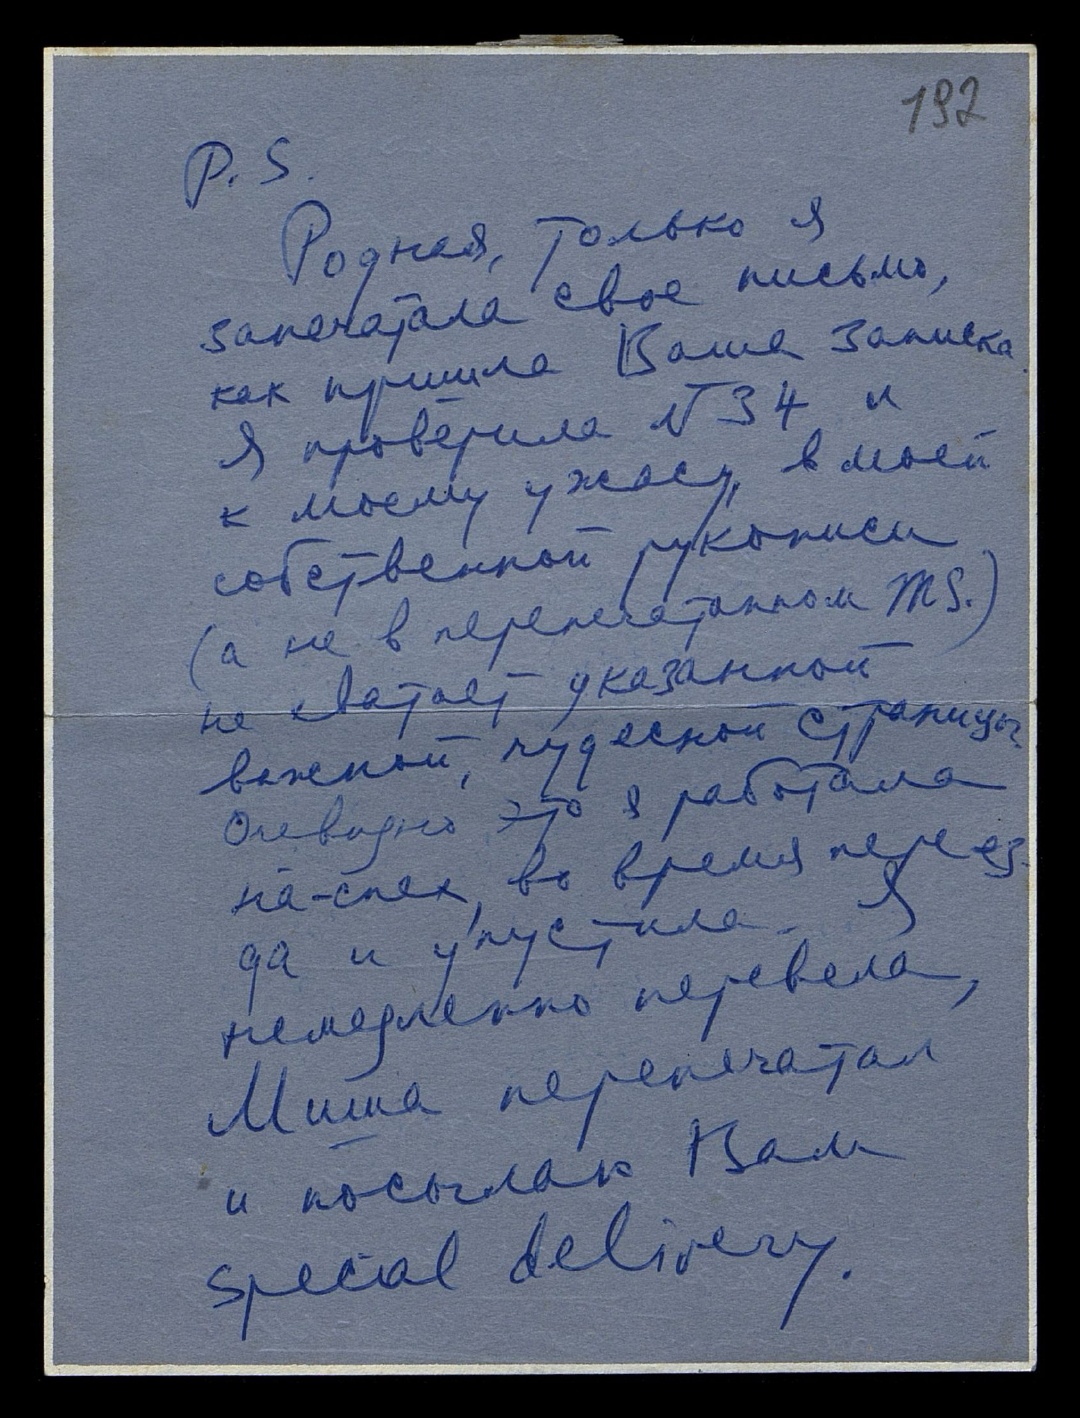 192
P. S.
Родная, только я
запечатала свое письмо,
как пришла Ваша записка.
Я проверила № 34 и
к моему ужасу, в моей
собственной рукописи
(а не в перепечатанном MS.)
не хватает указанной
важной, чудесной страницы.
Очевидно это я работала
на-спех, во время переез-
да и упустила. Я
немедленно перевела,
Миша перепечатал
и посылаю Вам
special delivery.